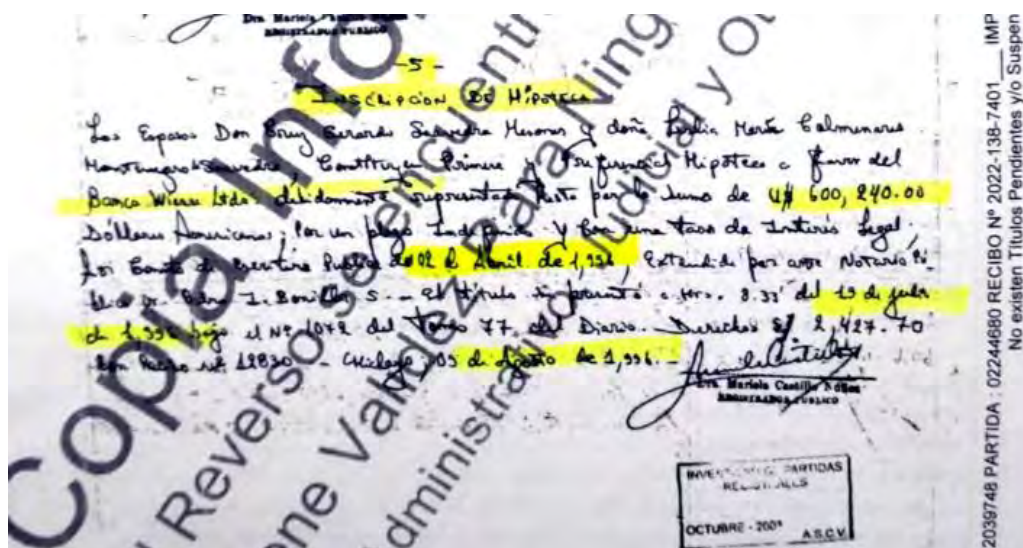 Dra. Mariela Castillo Núñez
REGISTRADOR PUBLICO
-5-
INSCRIPCION DE HIPOTECA
Los Esposos Don Gerardo Saavedra y doña María Colmenares
Montenegro de Saavedra, Constituyen Primera y Preferencial Hipoteca a favor del
Banco Wiese Ltdo. debidamente representado hasta por la suma de U$ 600,240.00
Dóllares Americanos; Por un plazo Indefinido y Por una tasa de Interés Legal.
Así Consta de Escritura Pública de 02 de Abril de 1,996, Extendida por ante Notario Pú-
blico Dr. Bonilla S. - El título se presentó a Hrs. 8.33' del 19 de Julio
de 1,996 bajo el Nº 1072 del Tomo 77 del Diario. Derechos S/ 2,427.70
Con Recibo nº 12830 - Chiclayo, 05 de Agosto de 1,996.-
Dra. Mariela Castillo Núñez
REGISTRADOR PUBLICO
INVENTARIO DE PARTIDAS
REGISTRALES
OCTUBRE - 2001 A.S.C.V.
Copia Info
l Reverso se encuentr
ene Validez Para Ning
dministrativo Judicial y Ot
2039748 PARTIDA : 02244680 RECIBO Nº 2022-138-7401___IMP
No existen Títulos Pendientes y/o Suspen